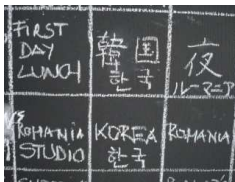 FIRST
DAY
LUNCH
韓国
한국
夜
ルーマニア
ROMANIA
STUDIO
KOREA
한국
ROMANIA